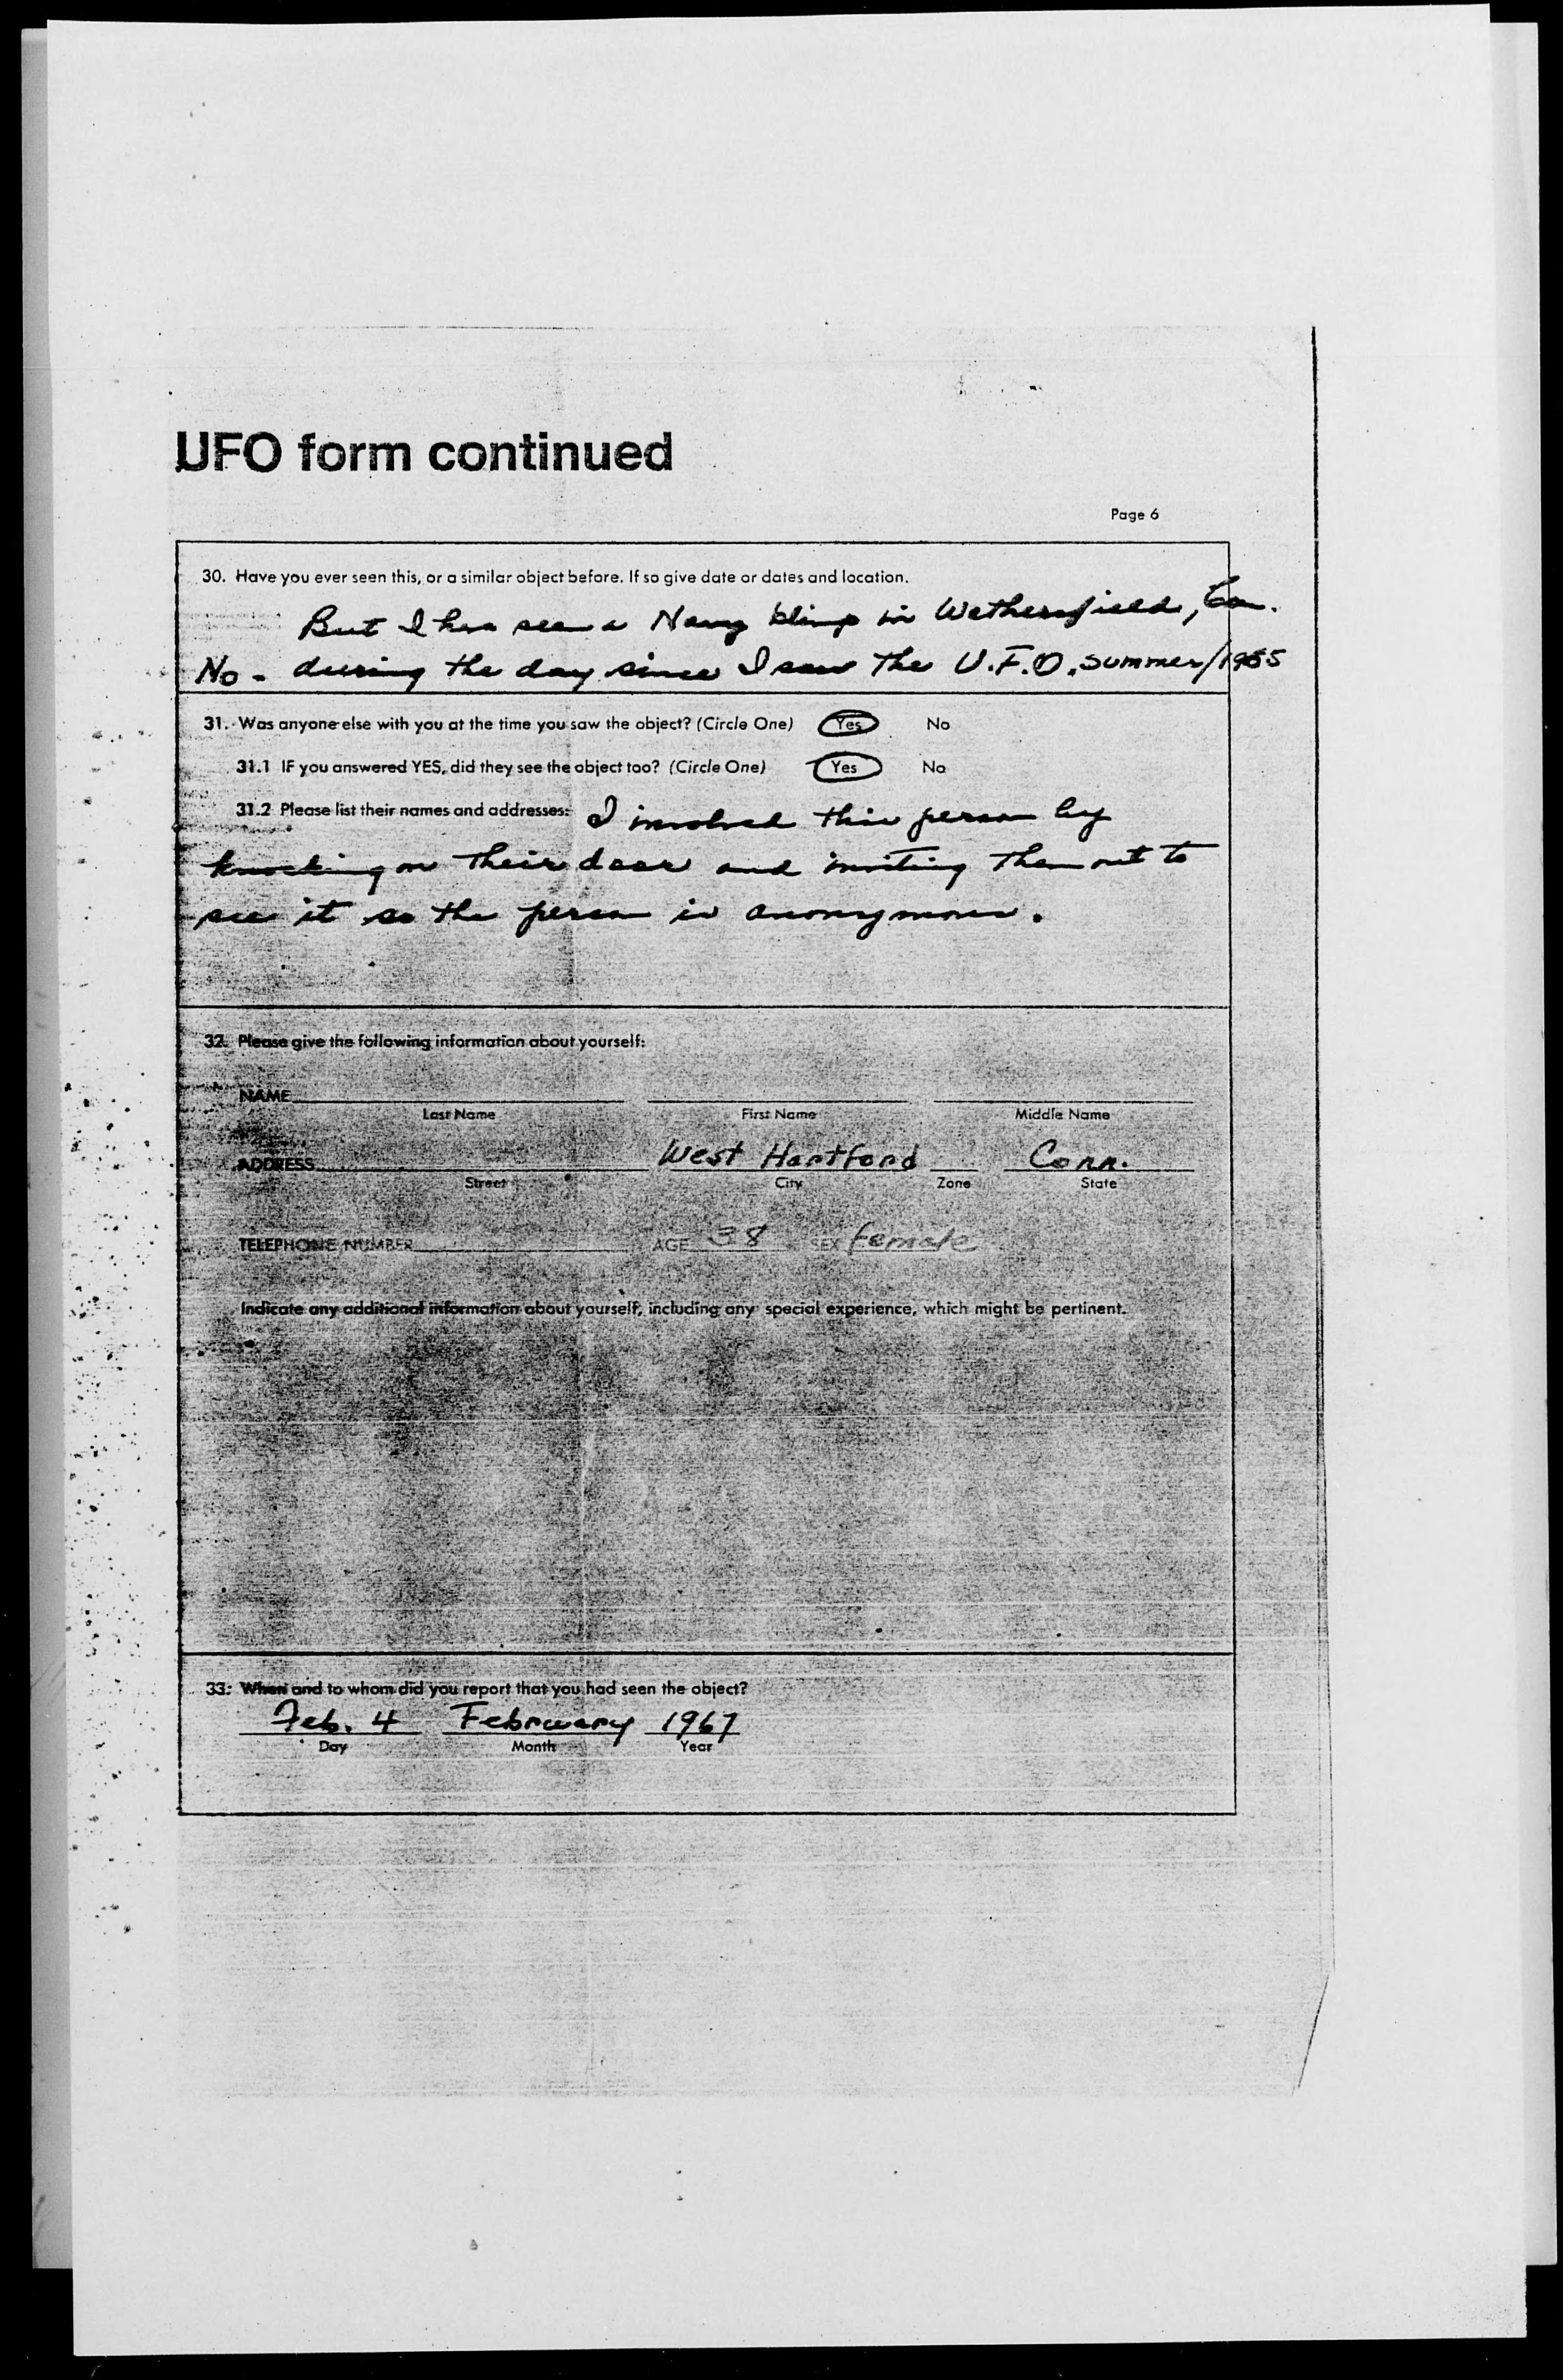 UFO form continued
Page 6
30. Have you ever seen this, or a similar object before. If so give date or dates and location.
But I have seen a Navy blimp in Wethersfield, Con.
No - during the day since I saw the U.F.O. summer/1965
31. Was anyone else with you at the time you saw the object? (Circle One) Yes No
31.1 IF you answered YES, did they see the object too? (Circle One) Yes No
31.2 Please list their names and addresses: I involved this person by
knocking on their door and inviting them out to
see it so the person is anonymous.
32. Please give the following information about yourself:
NAME
Last Name First Name Middle Name
ADDRESS West Hartford Conn.
Street City Zone State
TELEPHONE NUMBER AGE 38 SEX female
Indicate any additional information about yourself, including any special experience, which might be pertinent.
33. When and to whom did you report that you had seen the object?
Feb. 4 February 1967
Day Month Year